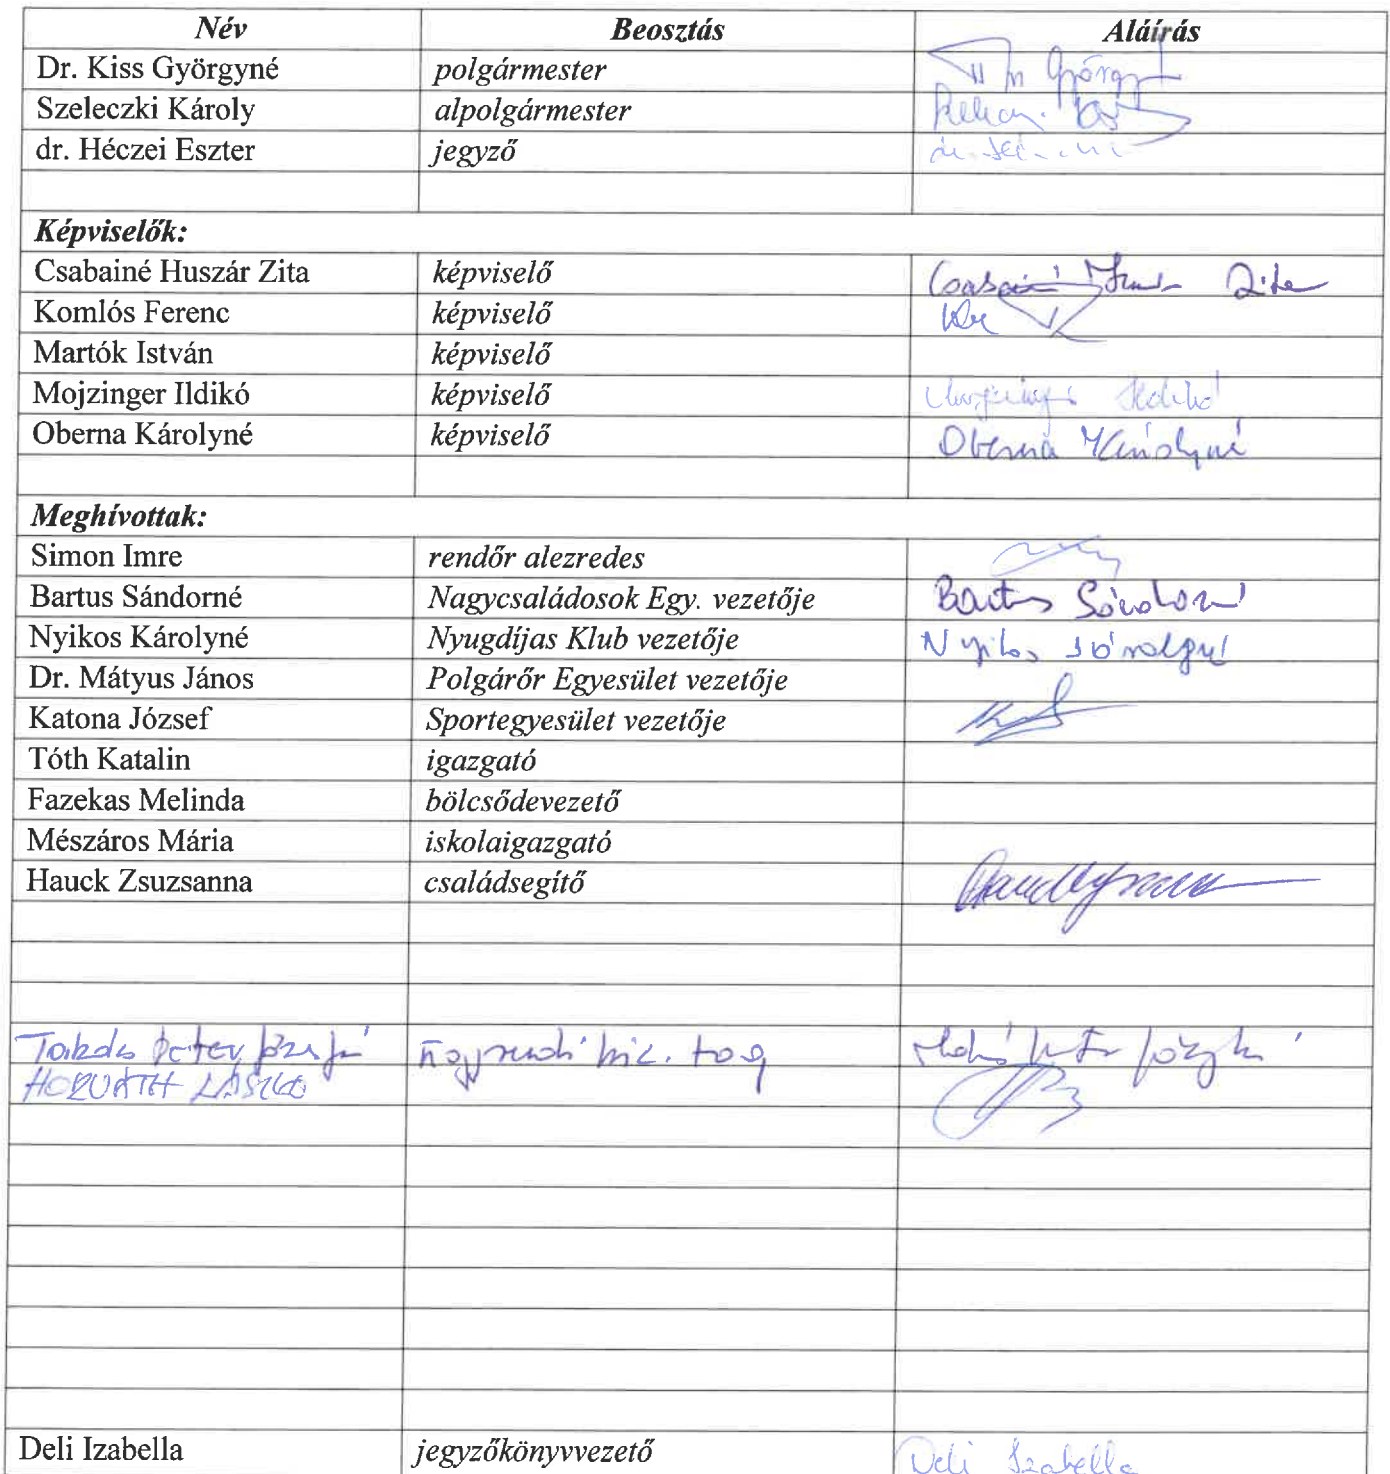 Név Beosztás Aláírás
Dr. Kiss Györgyné polgármester
Szeleczki Károly alpolgármester
dr. Héczei Eszter jegyző
Képviselők:
Csabainé Huszár Zita képviselő Csabainé Zita
Komlós Ferenc képviselő
Martók István képviselő
Mojzinger Ildikó képviselő Ildikó
Oberna Károlyné képviselő Oberna Károlyné
Meghívottak:
Simon Imre rendőr alezredes
Bartus Sándorné Nagycsaládosok Egy. vezetője Bartus Sándorné
Nyikos Károlyné Nyugdíjas Klub vezetője Nyikos Károlyné
Dr. Mátyus János Polgárőr Egyesület vezetője
Katona József Sportegyesület vezetője
Tóth Katalin igazgató
Fazekas Melinda bölcsődevezető
Mészáros Mária iskolaigazgató
Hauck Zsuzsanna családsegítő
HORVÁTH LÁSZLÓ
Deli Izabella jegyzőkönyvvezető Deli Izabella